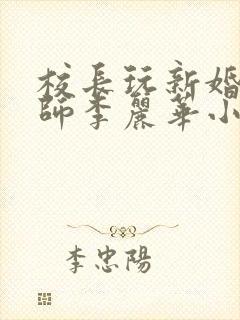 校長玩新婚
師李麗華小
李忠陽